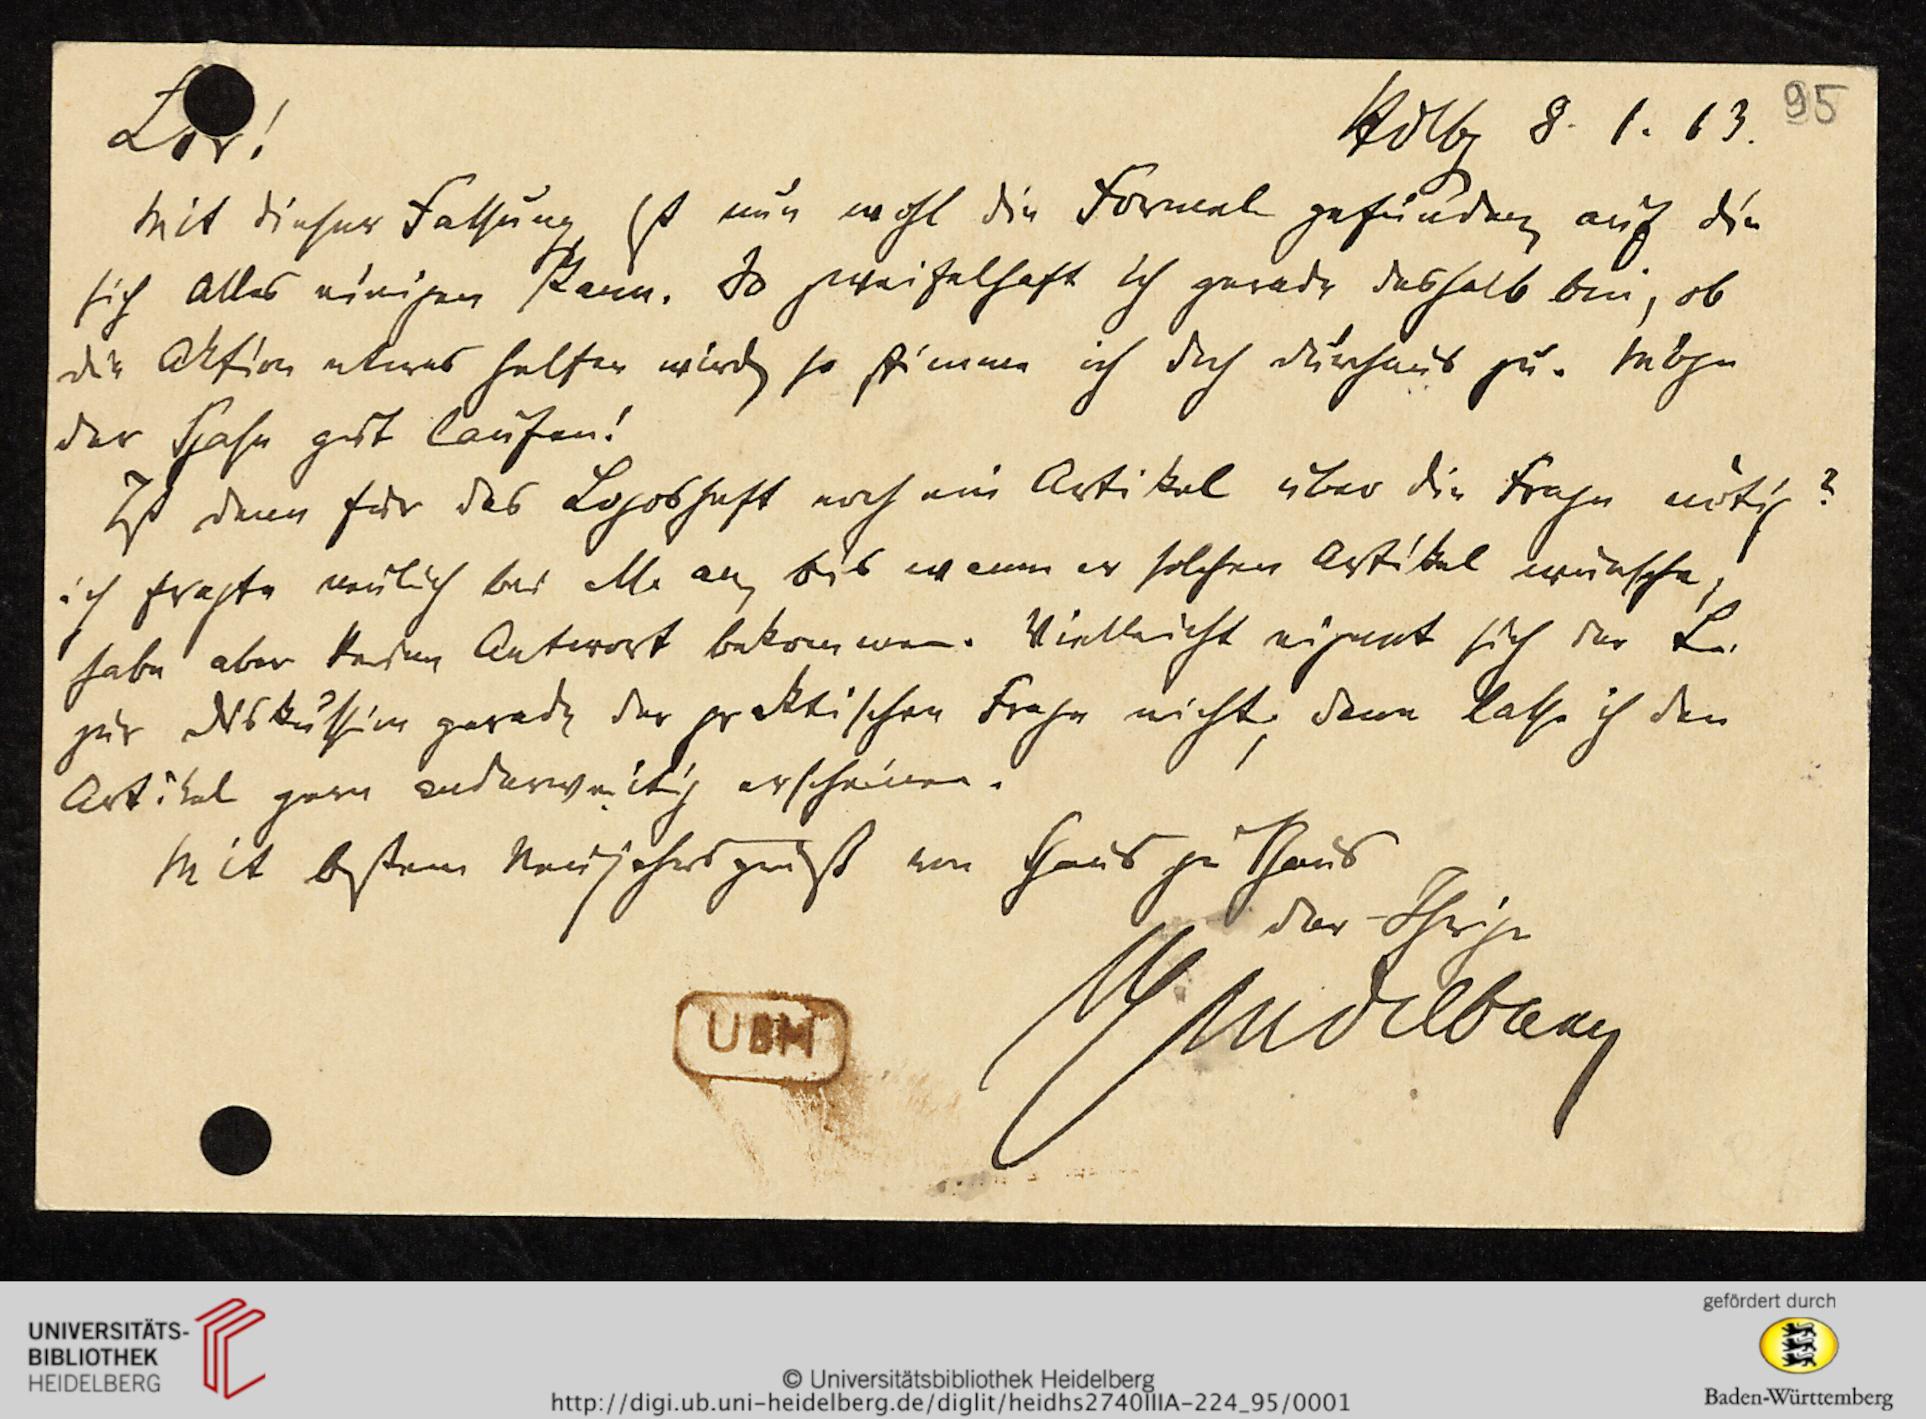 L. Fr.! Hdlbg 8. 1. 13. 95
Mit dieser Fassung ist nun wohl die Formel gefunden, auf die
sich Alles einigen kann. So zweifelhaft ich gerade deshalb bin, ob
die Aktion etwas helfen wird, so stimme ich doch durchaus zu. Möge
der Hase gut laufen!
Ist denn für das Logosheft noch ein Artikel über die Frage nötig?
ich fragte neulich bei M. an, bis wann er solchen Artikel wünsche,
habe aber keine Antwort bekommen. Vielleicht eignet sich der L.
zur Diskussion gerade der praktischen Frage nicht; dann lasse ich den
Artikel gern anderweitig erscheinen.
Mit bestem Neujahrsgruß von Haus zu Haus
der Ihrige
Windelband
UBH
UNIVERSITÄTS-
BIBLIOTHEK
HEIDELBERG
© Universitätsbibliothek Heidelberg
http://digi.ub.uni-heidelberg.de/diglit/heidhs2740IIIA-224_95/0001
gefördert durch
Baden-Württemberg